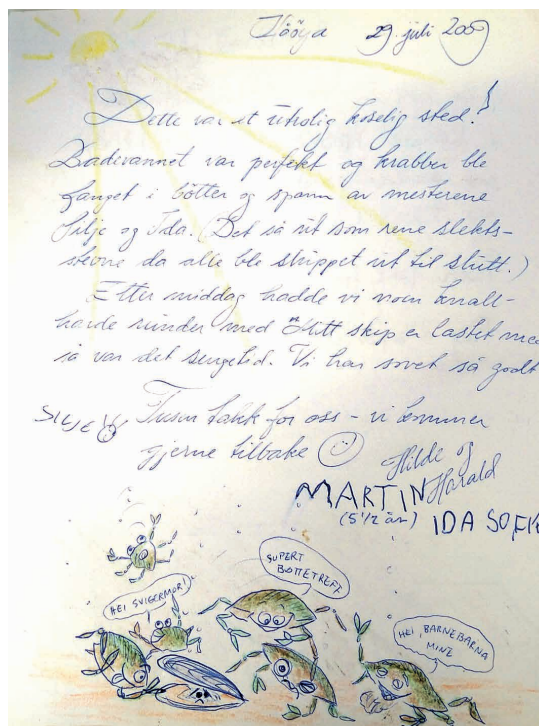 29. juli 2009
Dette var et utrolig koselig sted!
Badevannet var perfekt og krabber ble
fanget i bøtter og spann av mesterene
Silje og Ida. (Det så ut som rene slekts-
stevne da alle ble sluppet ut til slutt.)
Etter middag hadde vi noen knall-
harde runder med "Mitt skip er lastet med
så var det sengetid. Vi har sovet så godt
Tusen takk for oss - vi kommer
gjerne tilbake
SILJE
Hilde og
Harald
MARTIN
(5 1/2 år)
IDA SOFIE
SUPERT
BØTTETREFF
HEI SVIGERMOR!
HEI, BARNEBARNA
MINE